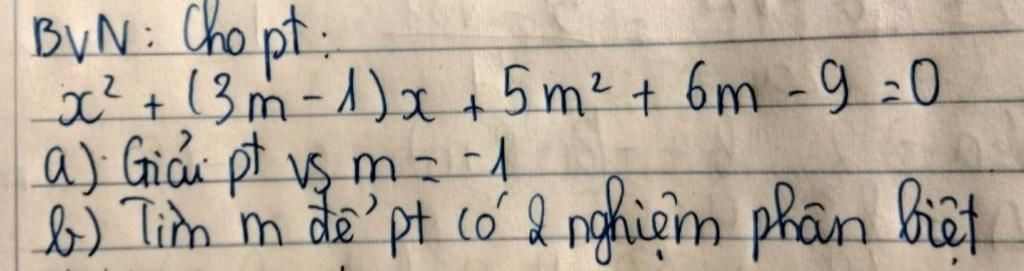 BVN: Cho pt:
x² + (3m - 1)x + 5m² + 6m - 9 = 0
a) Giải pt vs m = -1
b) Tìm m để pt có 2 nghiệm phân biệt